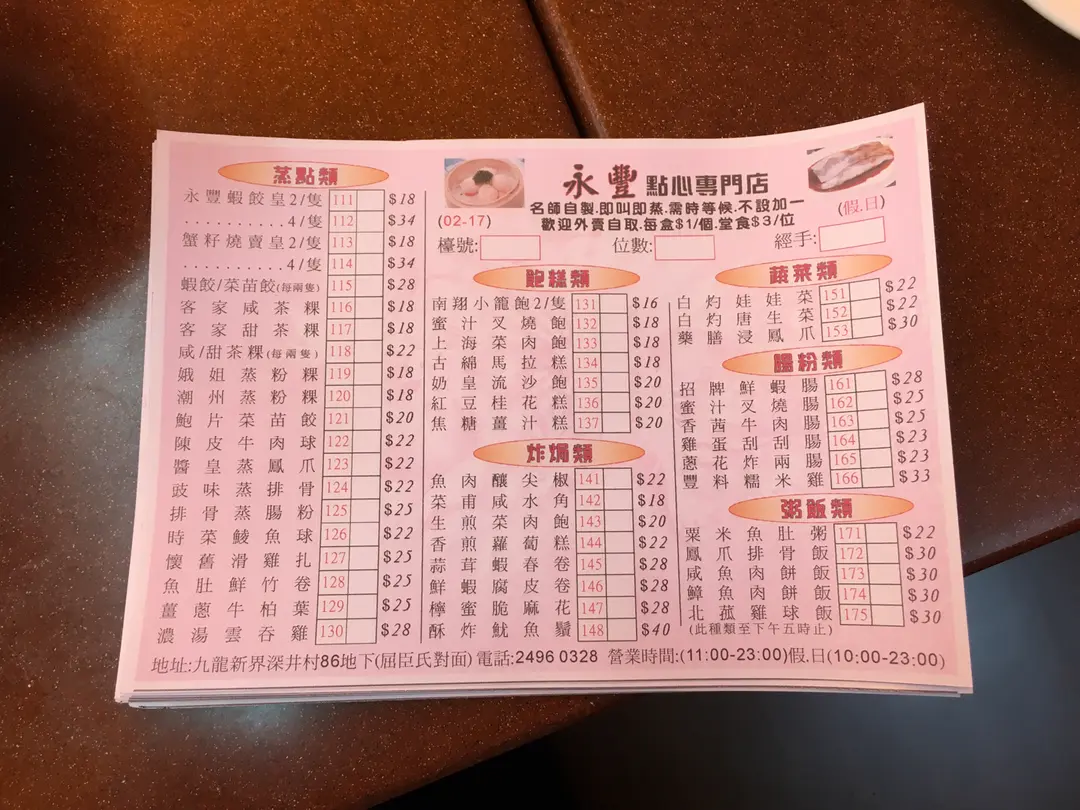 永豐 點心專門店
名師自製.即叫即蒸.需時等候.不設加一
(02-17) 歡迎外賣自取.每盒$1/個.堂食$3/位 (假.日)
檯號: 位數: 經手:
蒸點類
永豐蝦餃皇2/隻 111 $18
..........4/隻 112 $34
蟹籽燒賣皇2/隻 113 $18
..........4/隻 114 $34
蝦餃/菜苗餃(每兩隻) 115 $28
客家咸茶粿 116 $18
客家甜茶粿 117 $18
咸/甜茶粿(每兩隻) 118 $22
娥姐蒸粉粿 119 $18
潮州蒸粉粿 120 $18
鮑片菜苗餃 121 $20
陳皮牛肉球 122 $22
醬皇蒸鳳爪 123 $22
豉味蒸排骨 124 $22
排骨蒸腸粉 125 $25
時菜鯪魚球 126 $22
懷舊滑雞扎 127 $25
魚肚鮮竹卷 128 $25
薑蔥牛柏葉 129 $25
濃湯雲吞雞 130 $28
飽糕類
南翔小籠飽2/隻 131 $16
蜜汁叉燒飽 132 $18
上海菜肉飽 133 $18
古綿馬拉糕 134 $18
奶皇流沙飽 135 $20
紅豆桂花糕 136 $20
焦糖薑汁糕 137 $20
炸焗類
魚肉釀尖椒 141 $22
菜甫咸水角 142 $18
生煎菜肉飽 143 $20
香煎蘿蔔糕 144 $22
蒜茸蝦春卷 145 $28
鮮蝦腐皮卷 146 $28
檸蜜脆麻花 147 $28
酥炸魷魚鬚 148 $40
蔬菜類
白灼娃娃菜 151 $22
白灼唐生菜 152 $22
藥膳浸鳳爪 153 $30
腸粉類
招牌鮮蝦腸 161 $28
蜜汁叉燒腸 162 $25
香茜牛肉腸 163 $25
雞蛋刮刮腸 164 $23
蔥花炸兩腸 165 $23
豐料糯米雞 166 $33
粥飯類
粟米魚肚粥 171 $22
鳳爪排骨飯 172 $30
咸魚肉餅飯 173 $30
鱆魚肉餅飯 174 $30
北菰雞球飯 175 $30
(此種類至下午五時止)
地址:九龍新界深井村86地下(屈臣氏對面) 電話:2496 0328 營業時間:(11:00-23:00)假.日(10:00-23:00)